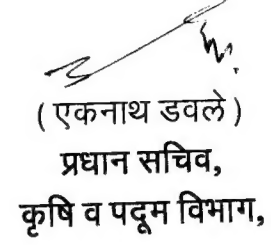 ( एकनाथ डवले )
प्रधान सचिव,
कृषि व पदूम विभाग,